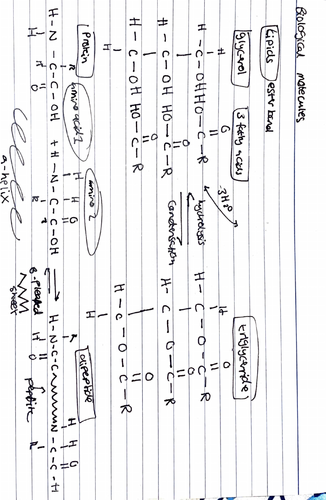 Biological molecules
Lipids ester bond
glycerol 3 fatty acids triglyceride
H O H O
H – C – OH HO – C – R H – C – O – C – R
3H₂O
hydrolysis
O O
H – C – OH HO – C – R H – C – O – C – R
Condensation
O O
H – C – OH HO – C – R H – C – O – C – R
H H
Protein amino acid 1 amino 2 dipeptide
R H H O R H H O
H – N – C – C – OH + H – N – C – C – OH H – N – C – C N – C – C – H
H H O R H O R
α-helix β-pleated sheet